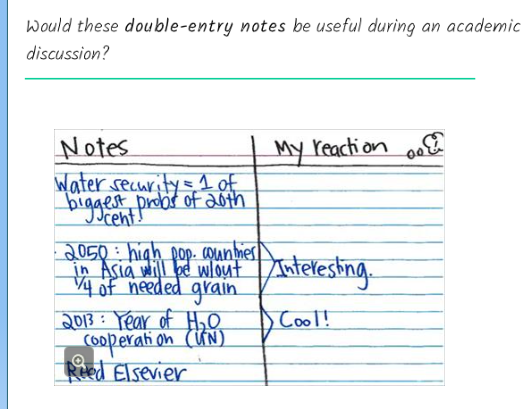 Would these double-entry notes be useful during an academic
discussion?
Notes
My reaction
Water security = 1 of
biggest probs of 20th
cent!
- 2050: high pop. countries
in Asia will be w/out
1/4 of needed grain
Interesting.
2013: Year of H₂O
cooperation (UN)
Cool!
Reed Elsevier